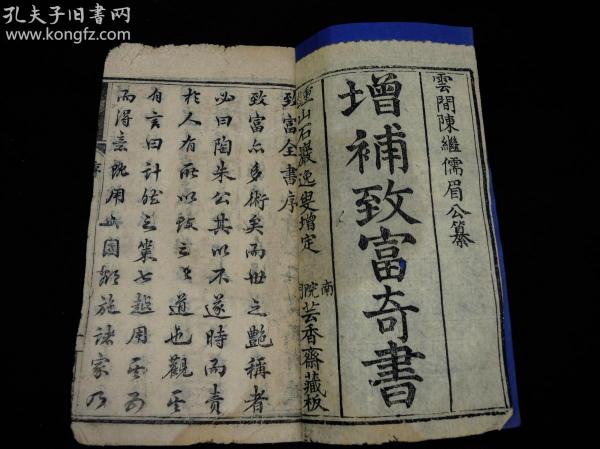 孔夫子旧书网
www.kongfz.com
雲間陳繼儒眉公纂
增補致富奇書
南
院芸香齋藏板
山石巖逸叟增定
致富全書序
致富亦多術矣而世之艷稱者
必曰陶朱公其以不遂時而責
於人有所以致之之道也觀其
有言曰計然之策七越用其五
而得意既用於國欲施諸家乃
序